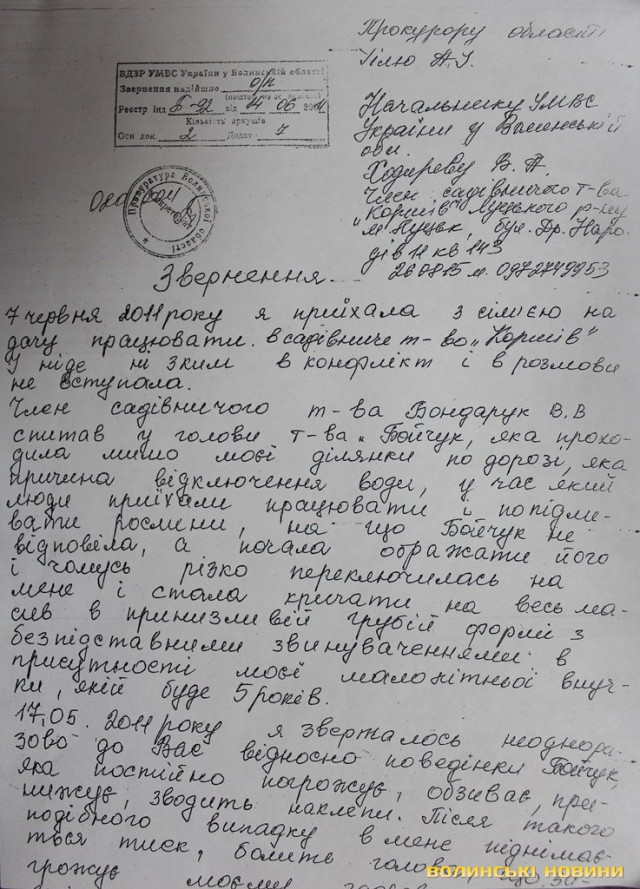 Прокурору області
Гілю А.І.
ВДЗР УМВС України у Волинській області
Звернення надійшло о/п
Реєстр інд Б-92 від 14 06 2011
Кількість аркушів
Осн. док. 2 Додат.
Начальнику УМВС
України у Волинській
обл.
Ходиреву В. П.
Член садівничого т-ва
"Коршів" Луцького р-ну
м Луцьк, бул. Др. Наро-
дів 11 кв 143
260815 м. 0972749953
Прокуратура Волинської області
Звернення.
7 червня 2011 року я приїхала з сімією на
дачу працювати. в садівниче т-во „Коршів"
У ніде ні з ким в конфлікт і в розмови
не вступала.
Член садівничого т-ва Бондарук В.В
спитав у голови т-ва „ Бойчук, яка прохо-
дила мимо моєї ділянки по дорозі, яка
причина відключення води, у час який
люди приїхали працювати і попідли-
вати рослини, на що Бойчук не
відповіла, а почала ображати його
і чомусь різко переключилась на
мене і стала кричати на весь ма-
сив в принизливій грубій формі з
безпідставними звинуваченнями в
присутності моєї малолітньої внуч-
ки, якій буде 5 років.
17.05. 2011 року я зверталось неоднора-
зово до Вас відносно поведінки Бойчук,
яка постійно погрожує, обзиває, при-
нижує, зводить наклепи. Після такого
подібного випадку в мене піднімає-
ться тиск, болить голова,
грожує моєму
волинські новини